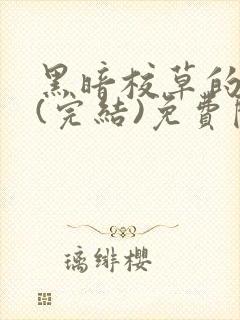 黑暗校草的
(完結)免費
璃緋櫻